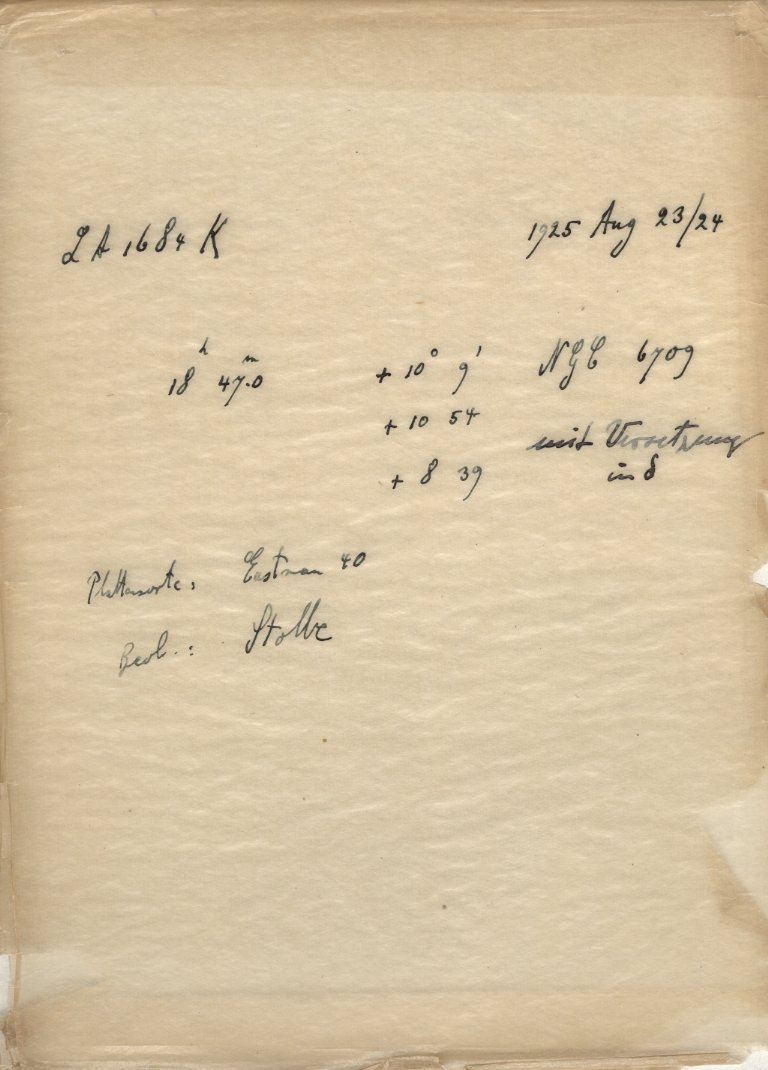 LA 1684 K 1925 Aug 23/24
18ʰ 47ᵐ.0 + 10° 9' NGC 6709
+ 10 54 mit Versetzung
+ 8 39 in δ
Plattensorte: Eastman 40
Beob.: Stobbe